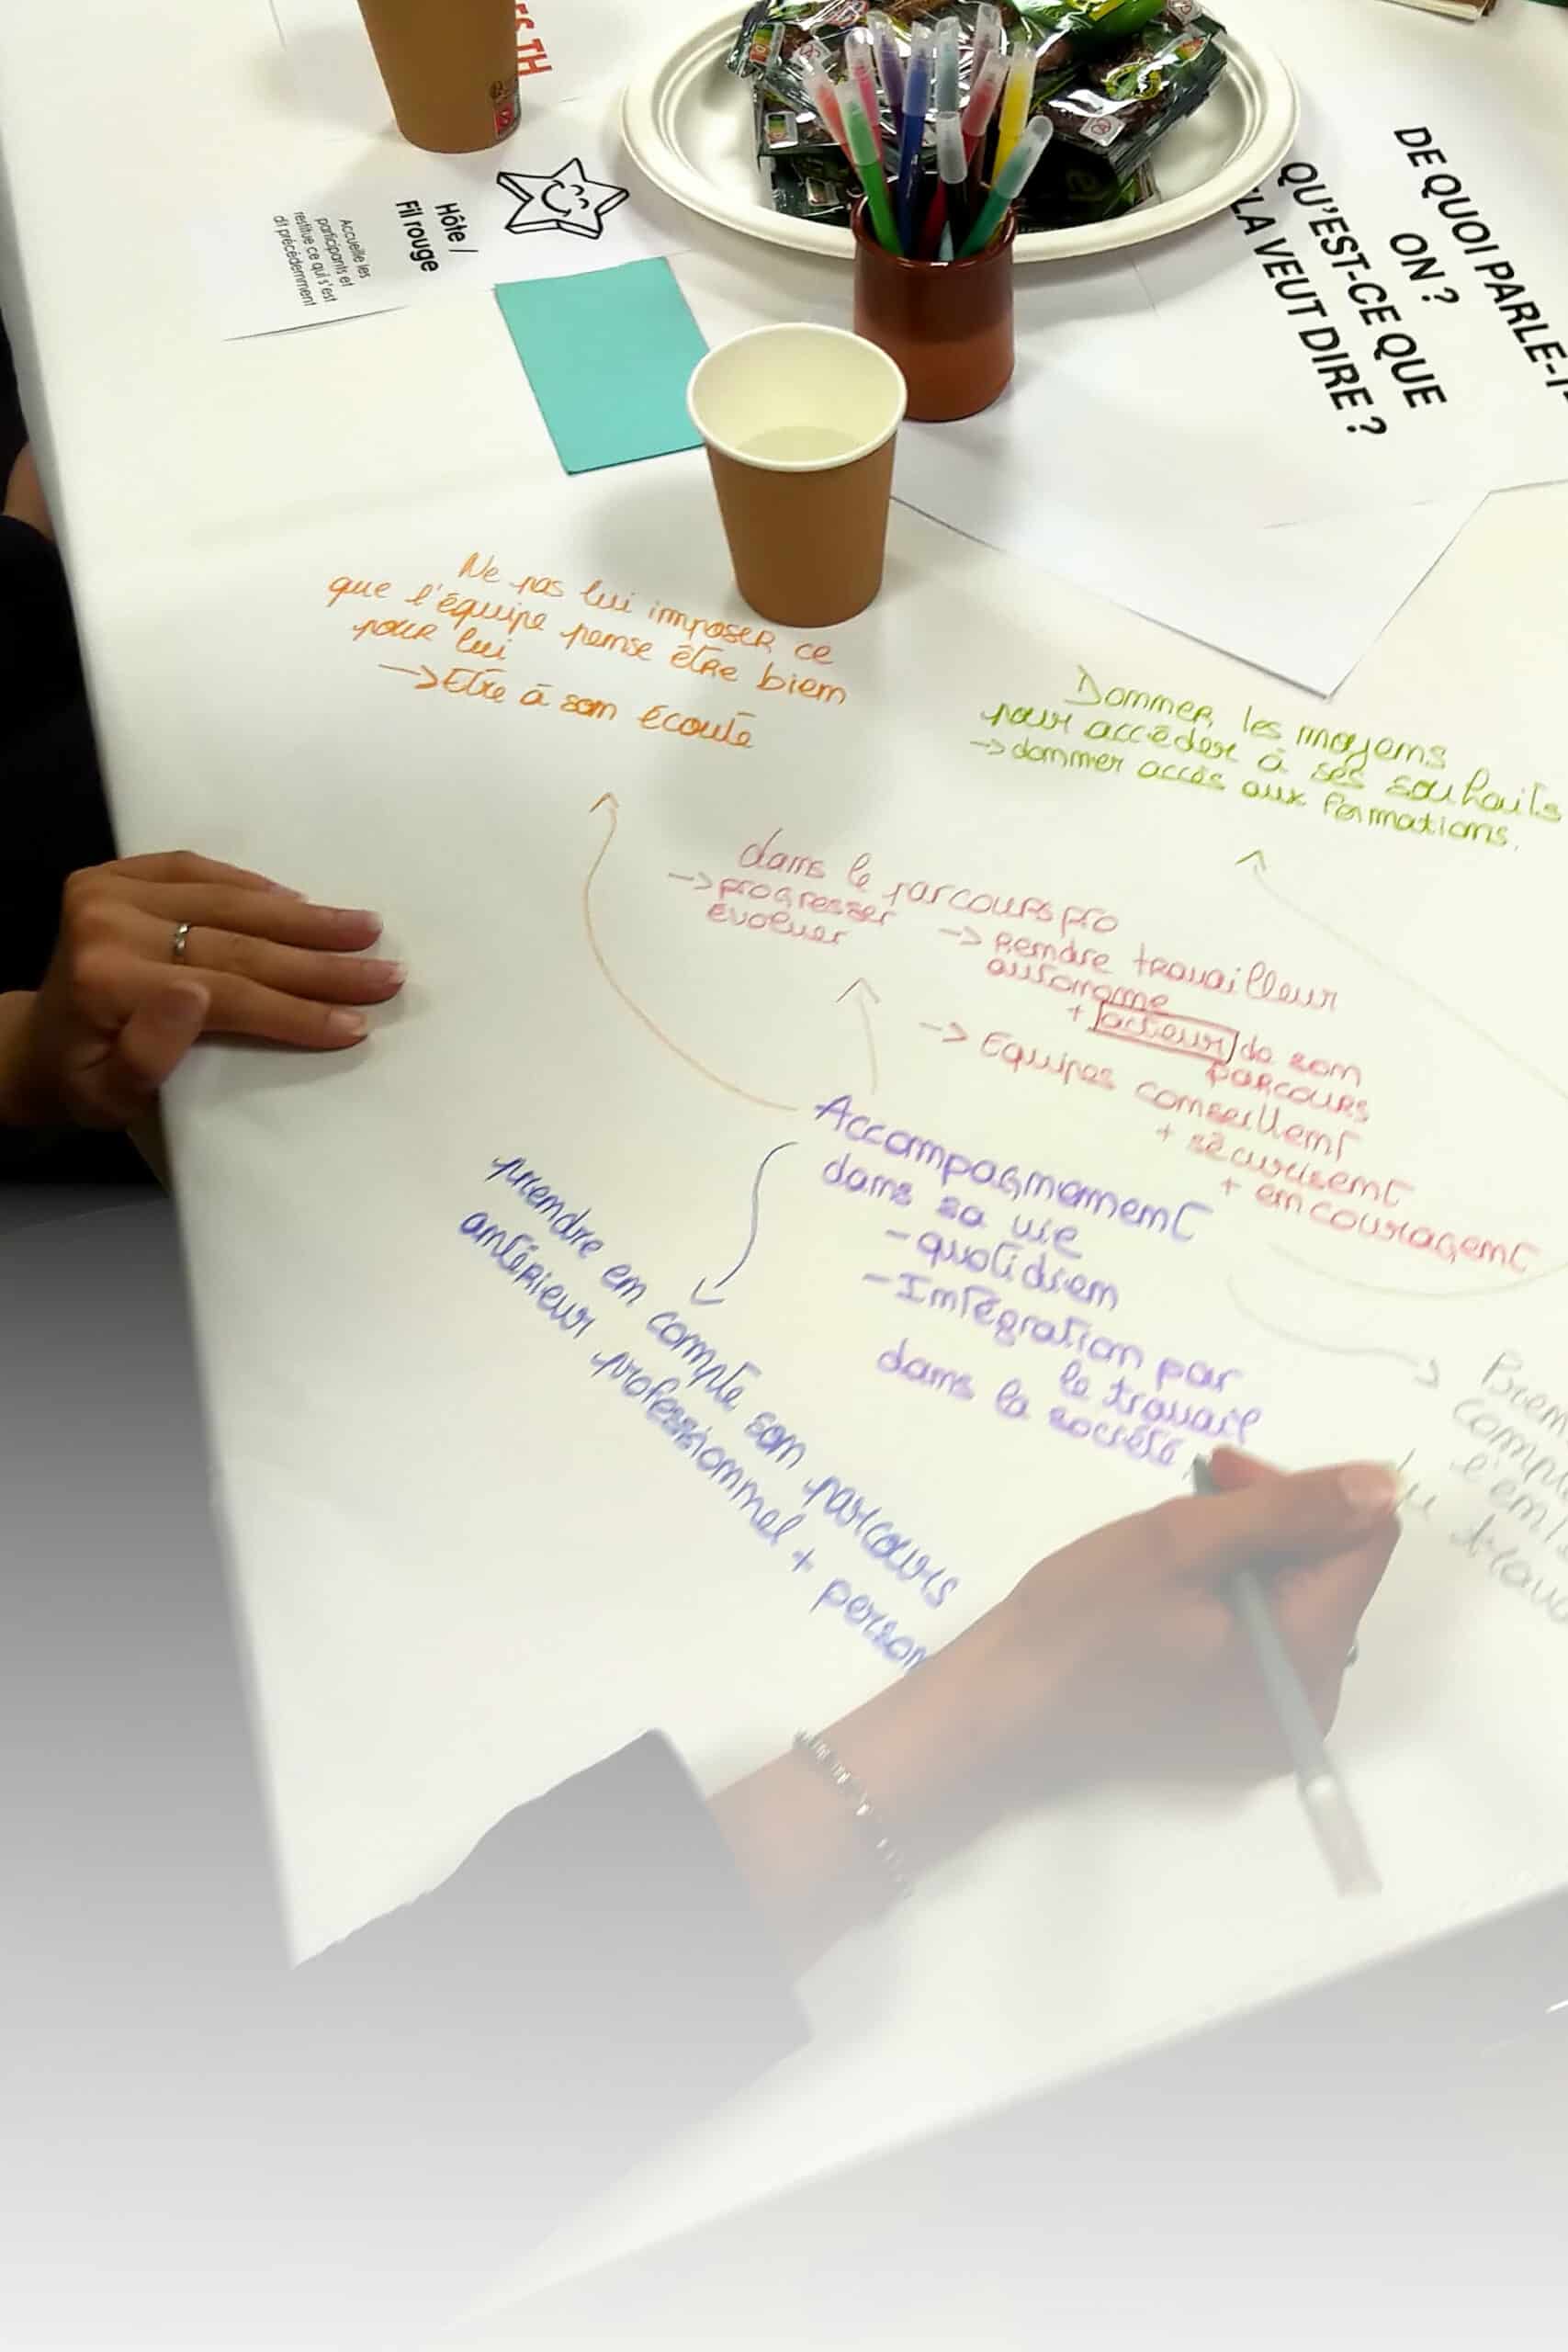 ES TH
Hôte /
Fil rouge
Accueille les
participants et
restitue ce qui s'est
dit précédemment
DE QUOI PARLE-T-
ON ?
QU'EST-CE QUE
LA VEUT DIRE ?
Ne pas lui imposer ce
que l'équipe pense être bien
pour lui
-> Etre à son écoute
Donner les moyens
pour accéder à ses souhaits
-> donner accès aux formations.
dans le parcours pro
-> progresser
évoluer
-> Rendre travailleur
autonome
+ acteur de son
parcours
-> Equipes conseillent
+ sécurisent
+ encouragent
Accompagnement
dans sa vie
- quotidien
- Intégration par
le travail
dans la société
prendre en compte son parcours
antérieur professionnel + person
Bien
comp
l'em
du trava